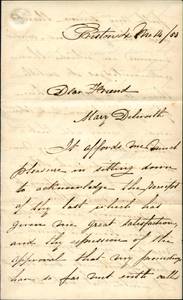 Dear Friend
Mary Dilworth
It affords me much
pleasure in sitting down
to acknowledge the receipt
of thy last which has
given me great satisfaction,
and thy expression of the
approval that my
have so far met with calls